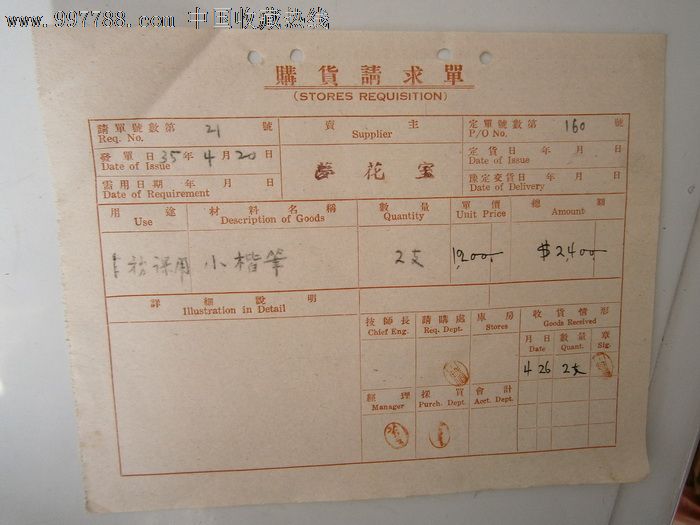 www.997788.com 中国收藏热线
購貨請求單
(STORES REQUISITION)
請單號數第 21 號
Req. No.
賣主
Supplier
定單號數第 160 號
P/O No.
發單日 35年 4月 20日
Date of Issue
夢花室
定貨日 年 月 日
Date of Issue
需用日期 年 月 日
Date of Requirement
豫定交貨日 年 月 日
Date of Delivery
用途
Use
材料名稱
Description of Goods
數量
Quantity
單價
Unit Price
總額
Amount
小楷筆
2支
1,200
$2,400
詳細說明
Illustration in Detail
技師長
Chief Eng.
請購處
Req. Dept.
庫房
Stores
收貨情形
Goods Received
月日
Date
數量
Quant.
章
Sig.
4 26 2支
經理
Manager
採買
Purch. Dept.
會計
Acct. Dept.